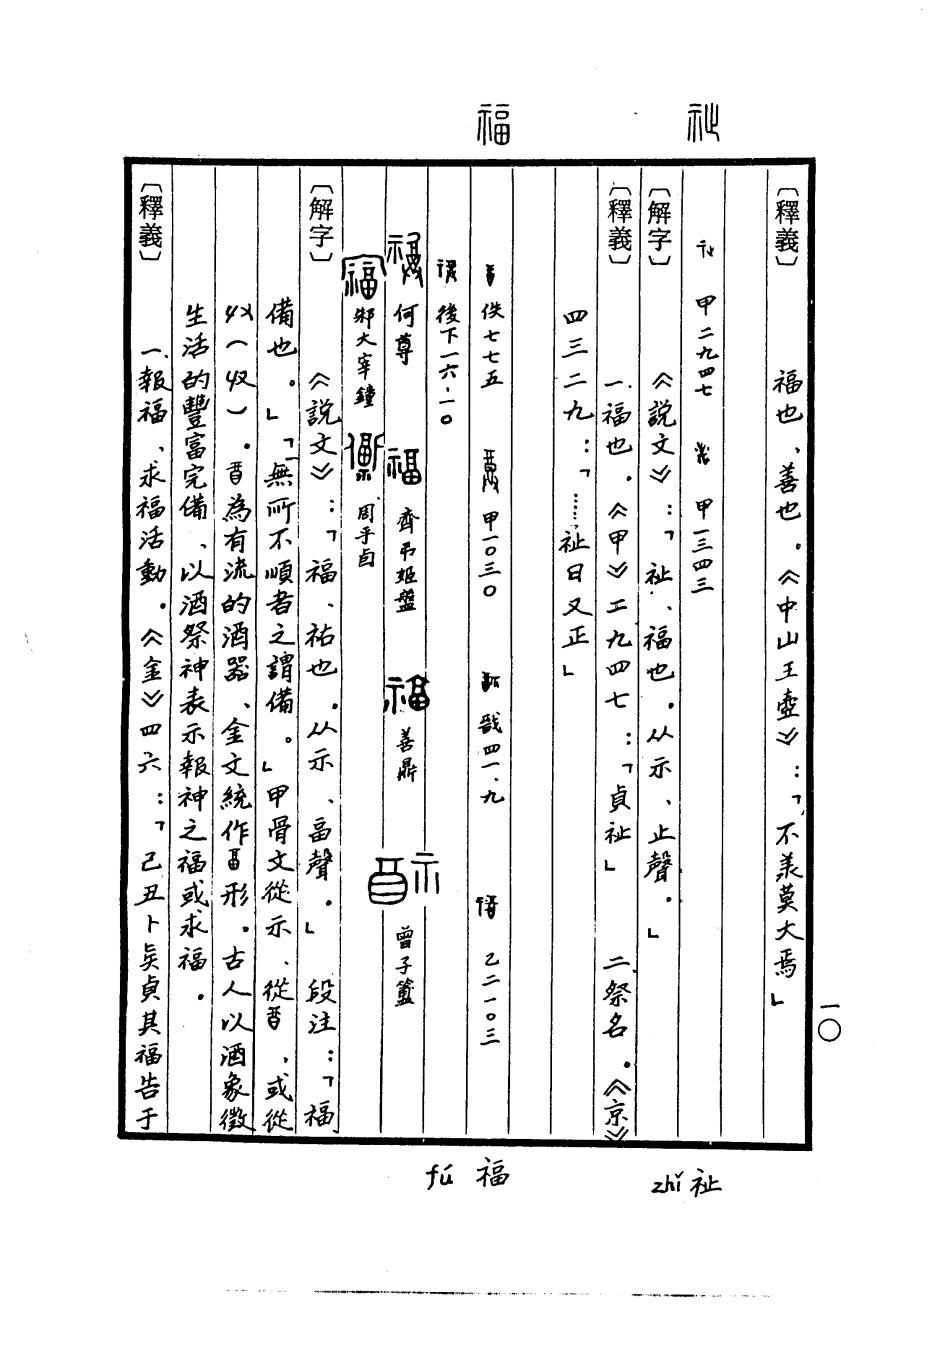 祉
福
〔釋義〕 福也、善也。《中山王壺》：「不羕莫大焉」
甲二九四七 甲一三四三
〔解字〕 《説文》：「祉、福也。从示、止聲。」
〔釋義〕 一、福也。《甲》工九四七：「貞祉」 二、祭名。《京》
四三二九：「……祉日又正」
佚七七五 甲一〇三〇 戩四一.九 乙二一〇三
後下一六.一〇
何尊 齊弔姬盤 善鼎 曾子簠
邾大宰鐘 周乎卣
〔解字〕 《説文》：「福、祐也。从示、畐聲。」 段注：「福
備也。」「無所不順者之謂備。」甲骨文從示、從 、或從
（収）。 為有流的酒器、金文統作 形。古人以酒象徵
生活的豐富完備、以酒祭神表示報神之福或求福。
〔釋義〕 一、報福、求福活動。《金》四六：「己丑卜 貞其福告于
一〇
zhǐ 祉
fú 福